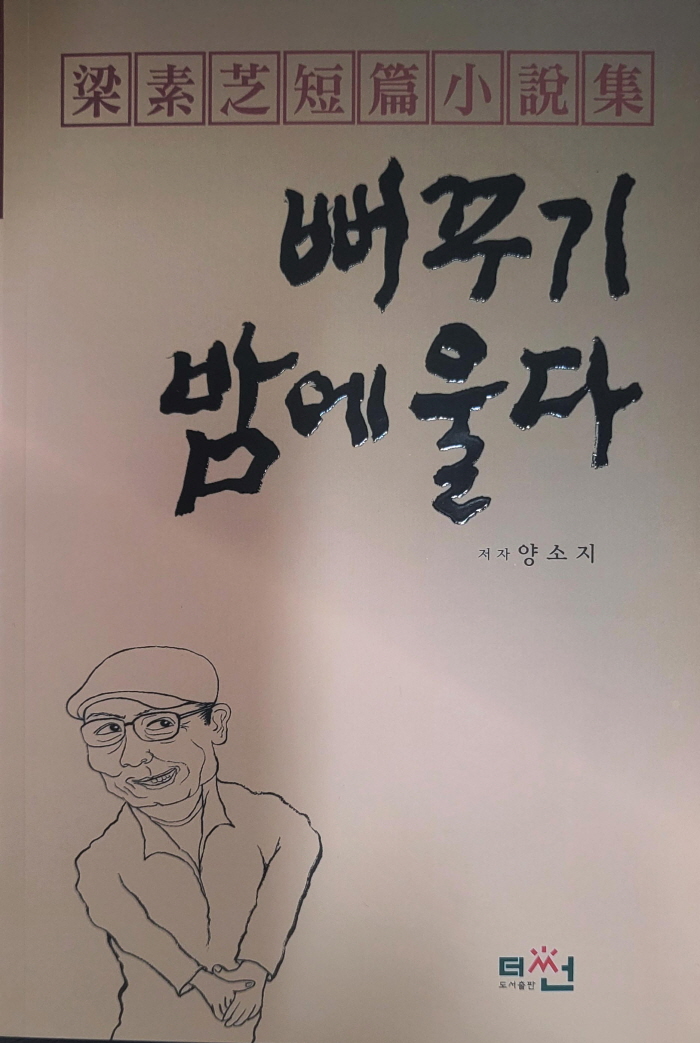 梁素芝短篇小說集
뻐꾸기
밤에 울다
저자 양소지
더썬
도서출판